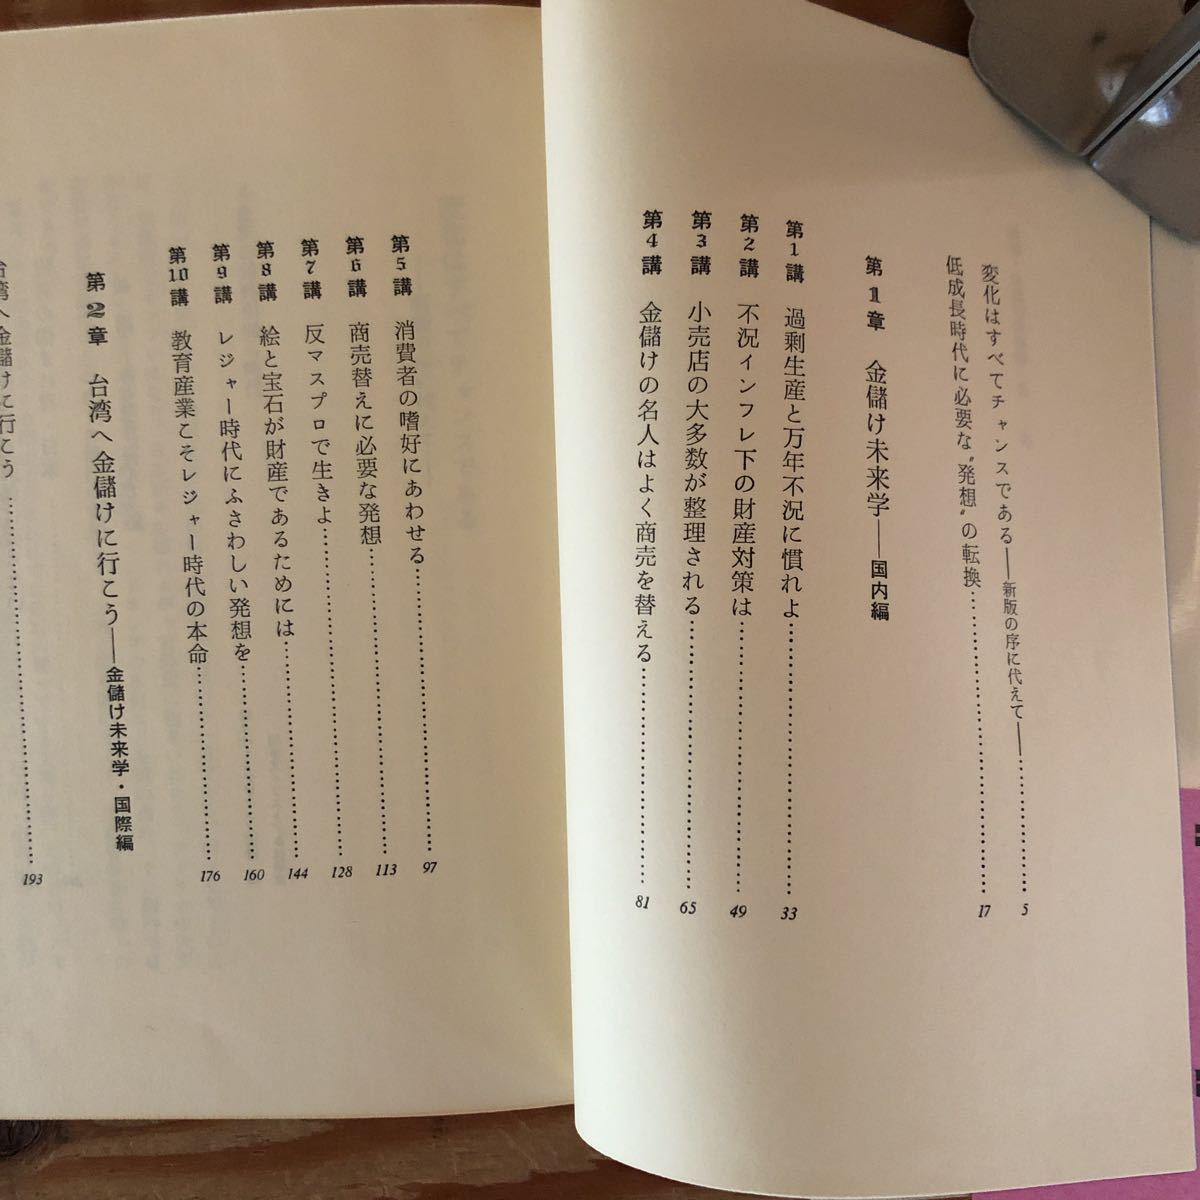 変化はすべてチャンスである——新版の序に代えて——…………5
低成長時代に必要な〝発想〟の転換…………17
第1章 金儲け未来学——国内編
第1講 過剰生産と万年不況に慣れよ…………33
第2講 不況インフレ下の財産対策は…………49
第3講 小売店の大多数が整理される…………65
第4講 金儲けの名人はよく商売を替える…………81
第5講 消費者の嗜好にあわせる…………97
第6講 商売替えに必要な発想…………113
第7講 反マスプロで生きよ…………128
第8講 絵と宝石が財産であるためには…………144
第9講 レジャー時代にふさわしい発想を…………160
第10講 教育産業こそレジャー時代の本命…………176
第2章 台湾へ金儲けに行こう——金儲け未来学・国際編
台湾へ金儲けに行こう…………193